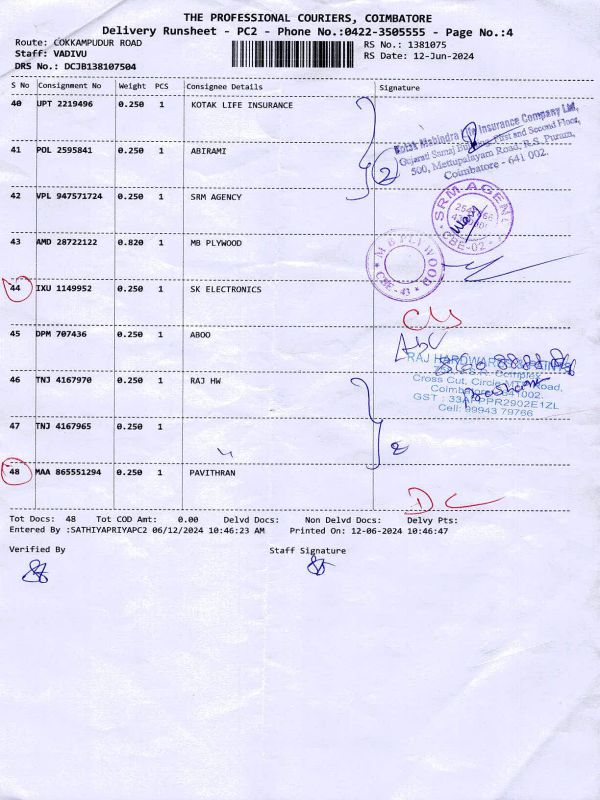 THE PROFESSIONAL COURIERS, COIMBATORE
Delivery Runsheet - PC2 - Phone No.:0422-3505555 - Page No.:4
Route: COKKAMPUDUR ROAD
RS No.: 1381075
Staff: VADIVU
RS Date: 12-Jun-2024
DRS No.: DCJB138107504
S No Consignment No Weight PCS Consignee Details Signature
40 UPT 2219496 0.250 1 KOTAK LIFE INSURANCE
Kotak Mahindra Life Insurance Company Ltd,
Gujarati Samaj Building, First and Second Floor,
500, Mettupalayam Road, R.S. Puram,
Coimbatore - 641 002.
41 POL 2595841 0.250 1 ABIRAMI
2
42 VPL 947571724 0.250 1 SRM AGENCY
SRM AGENC
CBE-02
43 AMD 28722122 0.820 1 MB PLYWOOD
M B PLYWOOD
CBE - 43
44 IXU 1149952 0.250 1 SK ELECTRONICS
45 DPM 707436 0.250 1 ABOO
RAJ HARDWARE
Complex
46 TNJ 4167970 0.250 1 RAJ HW
Cross Cut, Circle MTP Road,
Coimbatore - 641002.
GST : 33 PR2902E1ZL
Cell: 99943 79766
47 TNJ 4167965 0.250 1
2
48 MAA 865551294 0.250 1 PAVITHRAN
DC
Tot Docs: 48 Tot COD Amt: 0.00 Delvd Docs: Non Delvd Docs: Delvy Pts:
Entered By :SATHIYAPRIYAPC2 06/12/2024 10:46:23 AM Printed On: 12-06-2024 10:46:47
Verified By Staff Signature